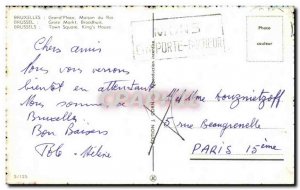 BRUXELLES : Grand'Place, Maison du Roi
BRUSSEL : Grote Markt, Broodhuis.
BRUSSELS : Town Square, King's House.
MONS
PORTE-BONHEUR
Photo
couleur
Chers amis
Nous vous verrons
bientôt en attendant
Nous sommes à
Bruxelles
Bon Baisers
Pole - Hélène
Mr et Mme Wouznietzoff
5 rue Beaugrenelle
PARIS 15ème